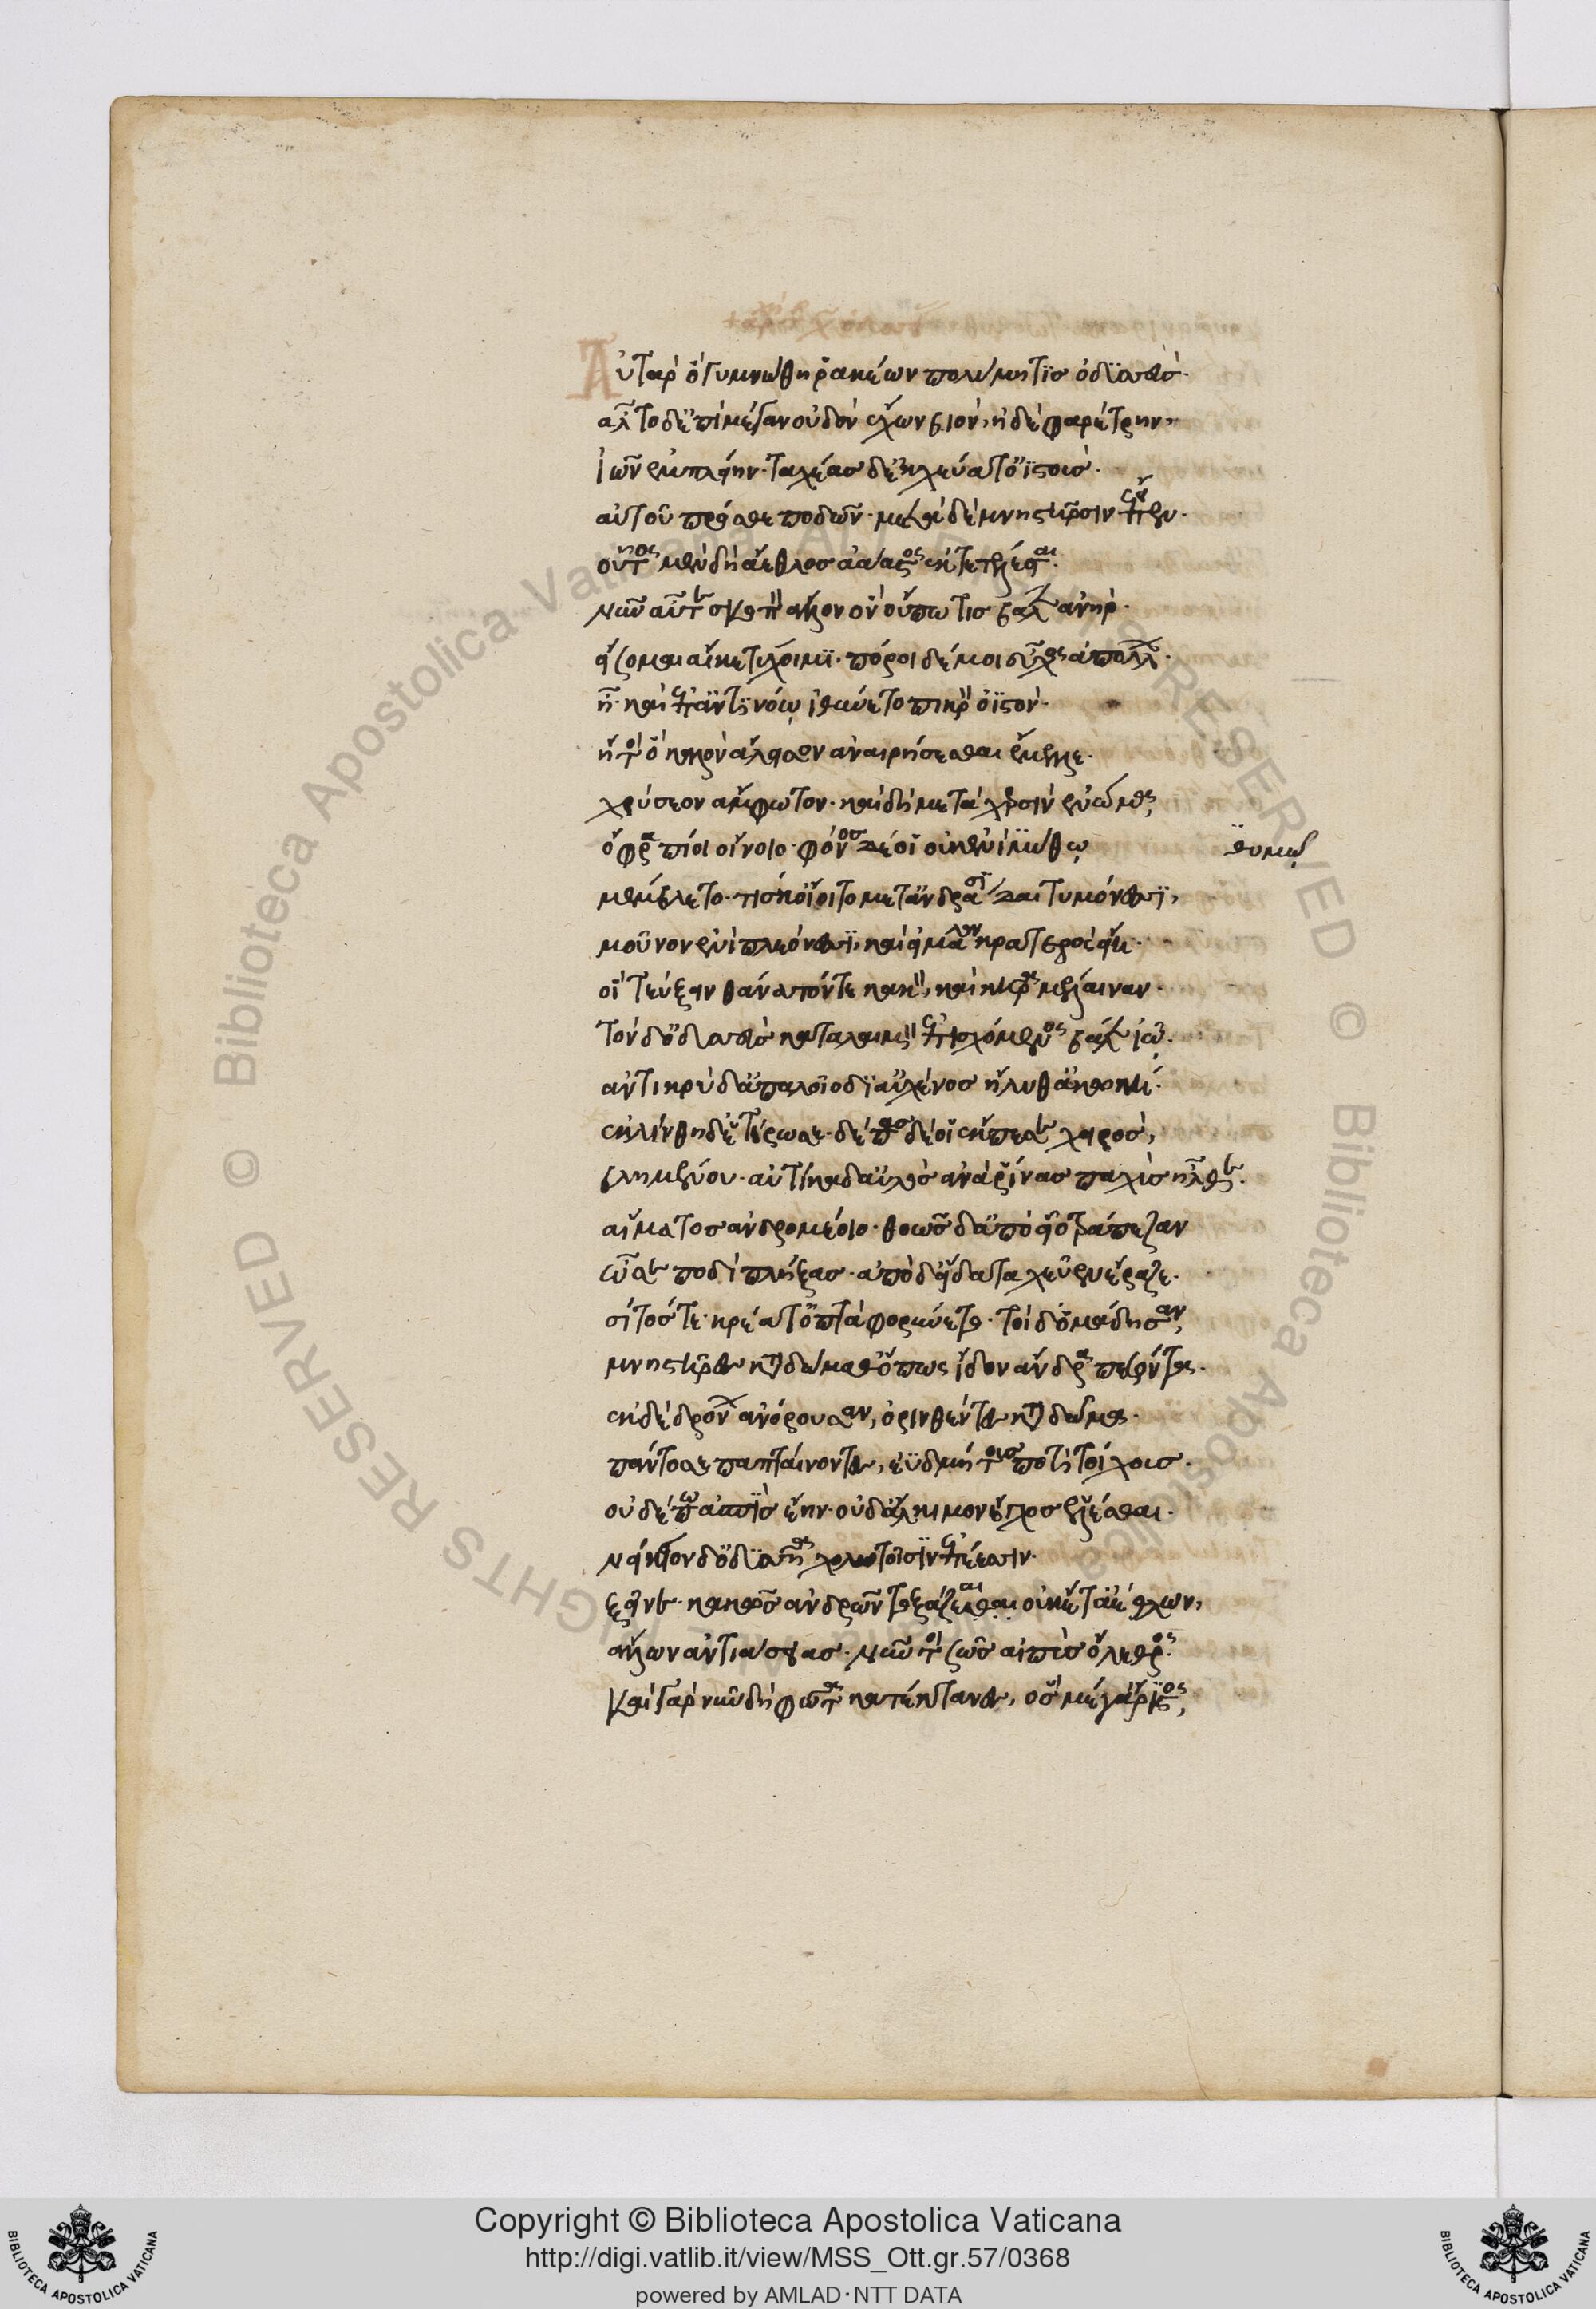 Αὐτὰρ ὁ γυμνώθη ῥακέων πολύμητις ὀδυσσεύς·
ἆλτο δ' ἐπὶ μέγαν οὐδὸν ἔχων βιὸν, ἠδὲ φαρέτρην,
ἰῶν ἐμπλείην· ταχέας δ' ἐκχεύατ' ὀϊστούς·
αὐτοῦ πρόσθε ποδῶν· μετὰ δὲ μνηστῆρσιν ἔειπεν·
οὗτος μὲν δὴ ἄεθλος ἀάατος ἐκτετέλεσται·
νῦν αὖτε σκοπὸν ἄλλον ὃν οὔπω τις βάλεν ἀνήρ·
εἴσομαι αἴκε τύχοιμι· πόροι δέ μοι εὖχος ἀπόλλων·
ἦ· καὶ ἐπ' ἀντινόῳ ἰθύνετο πικρὸν ὀϊστόν·
ἤτοι ὁ καλὸν ἄλεισον ἀναιρήσεσθαι ἔμελλε·
χρύσεον ἄμφωτον· καὶ δὴ μετὰ χερσὶν ἐνώμα,
ὄφρα πίοι οἴνοιο· φόνος δέ οἱ οὐκ ἐνὶ μύθῳ
θυμῷ
μέμβλετο· τίς κ' οἴοιτο μετ' ἀνδράσι δαιτυμόνεσσι,
μοῦνον ἐνὶ πλεόνεσσι, καὶ εἰ μάλα καρτερὸς εἴη·
οἷ τεύξειν θάνατόν τε κακὸν, καὶ κῆρα μέλαιναν·
τὸν δ' ὀδυσεὺς κατὰ λαιμὸν ἐπισχόμενος βάλεν ἰῷ·
ἀντικρὺ δ' ἁπαλοῖο δι' αὐχένος ἤλυθ' ἀκωκή·
ἐκλίνθη δ' ἑτέρωσε· δέπας δέ οἱ ἔκπεσε χειρός,
βλημένου· αὐτίκα δ' αὐλὸς ἀνὰ ῥῖνας παχὺς ἦλθεν·
αἵματος ἀνδρομέοιο· θοῶς δ' ἀπὸ εἷο τράπεζαν
ὦσε ποδὶ πλήξας· ἀπὸ δ' εἴδατα χεῦεν ἔραζε·
σῖτός τε κρέα τ' ὀπτὰ φορύνετο· τοὶ δ' ὁμάδησαν,
μνηστῆρες κατὰ δώμαθ' ὅπως ἴδον ἄνδρα πεσόντα·
ἐκ δὲ θρόνων ἀνόρουσαν, ὀρινθέντες κατὰ δῶμα·
πάντοσε παπταίνοντες, ἐϋδμήτους ποτὶ τοίχους·
οὐδέ πω ἀσπὶς ἔην· οὐδ' ἄλκιμον ἔγχος ἑλέσθαι·
νείκειον δ' ὀδυσῆα χολωτοῖσιν ἐπέεσσιν·
ξεῖνε· κακῶς ἀνδρῶν τοξάζεαι οὐκέτ' ἀέθλων,
ἄλλων ἀντιάσεας· νῦν τοι σῶς αἰπὺς ὄλεθρος·
Καὶ γὰρ νῦν δὴ φῶτα κατέκτανες, ὃς μέγ' ἄριστος,
Copyright © Biblioteca Apostolica Vaticana
http://digi.vatlib.it/view/MSS_Ott.gr.57/0368
powered by AMLAD·NTT DATA